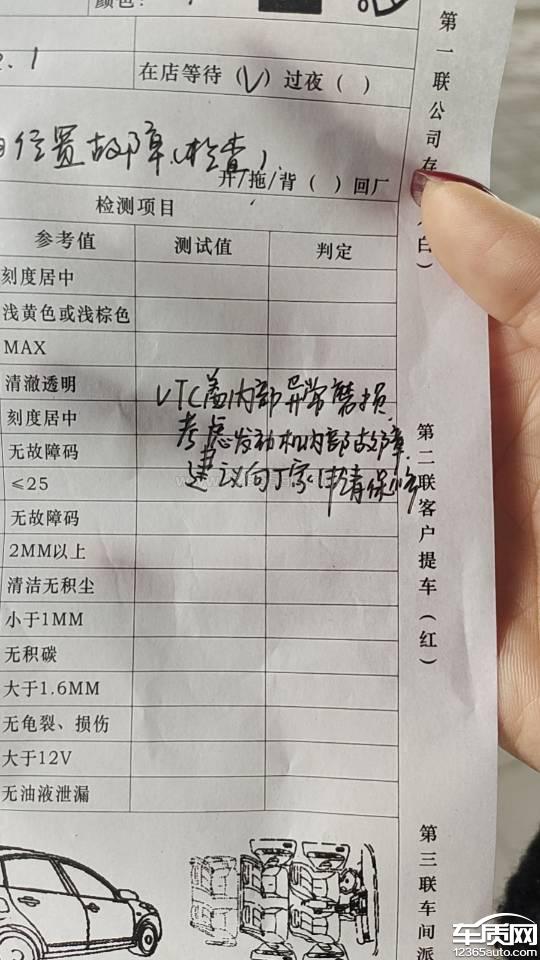 颜色:
2.1
在店等待（√）过夜（ ）
位置故障(检查).
开/拖/背（ ）回厂
检测项目
参考值 测试值 判定
刻度居中
浅黄色或浅棕色
MAX
清澈透明
刻度居中
无故障码
≤25
无故障码
2MM以上
清洁无积尘
小于1MM
无积碳
大于1.6MM
无龟裂、损伤
大于12V
无油液泄漏
VTC盖内部异常磨损
考虑发动机内部故障.
建议向厂家申请保修
第一联公司存
白）
第二联客户提车（红）
第三联车间派
车质网
12365auto.com